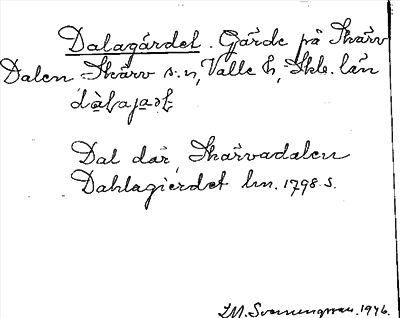 Dalagärdet. Gärde på Skärv
Dalen Skärv s:n, Valle h, Skb. län
Dal där, Skärvadalen
Dahlagierdet lm. 1798 s.
1946.